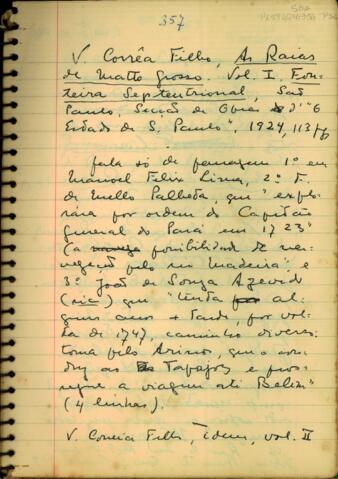 357
V. Corrêa Filho, As Raias
de Matto Grosso. Vol. I. Fron-
teira Septentrional, São
Paulo, Secção de Obras d'"O
Estado de S. Paulo", 1924, 113 pg
fala só de passagem 1º em
Manoel Felix Lima, 2º F.
de Mello Palheta, que "explo-
rára por ordem do Capitão
general do Pará em 1723"
(a possibilidade de na-
vegação pelo rio Madeira" e
3º João de Souza Azevedo
(sic) que "tenta al-
guns anos + tarde, por vol-
ta de 1747, caminho diverso
toma pelo Arinos, que o con-
duz ao Tapajós e pros-
segue a viagem até Belem"
(4 linhas).
V. Correia Filho, idem, vol. II